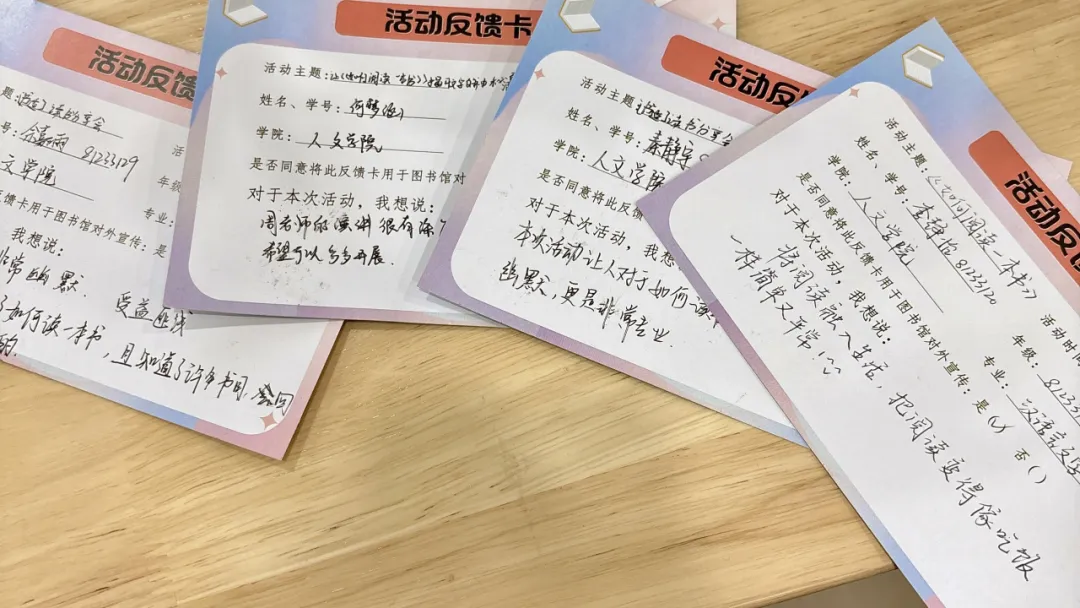 活动反馈
读书分享会
81233129
文学院
年级
专业:
反馈卡用于图书馆对外宣传:是
我想说:
非常幽默. 受益匪浅
了如何读一本书,且知道了许多书目,会回
的.
活动反馈卡
活动主题:
姓名、学号:
学院: 人文学院
是否同意将此反馈卡用于图书馆对
对于本次活动,我想说:
周老师的演讲很有深
希望可以多多开展.
活动反
活动主题: 读书分享会
姓名、学号: 秦静宇
学院: 人文学院
是否同意将此反馈
对于本次活动,我想
本次活动让人对于如何读
幽默,更是非常专业.
活动反
活动主题: 《如何阅读一本书》
姓名、学号: 81233120
活动时间
学院: 人文学院
年级: 812331
专业: 汉语言文学
是否同意将此反馈卡用于图书馆对外宣传:是(√) 否( )
对于本次活动,我想说:
将阅读融入生活,把阅读变得像吃饭
一样简单又平常